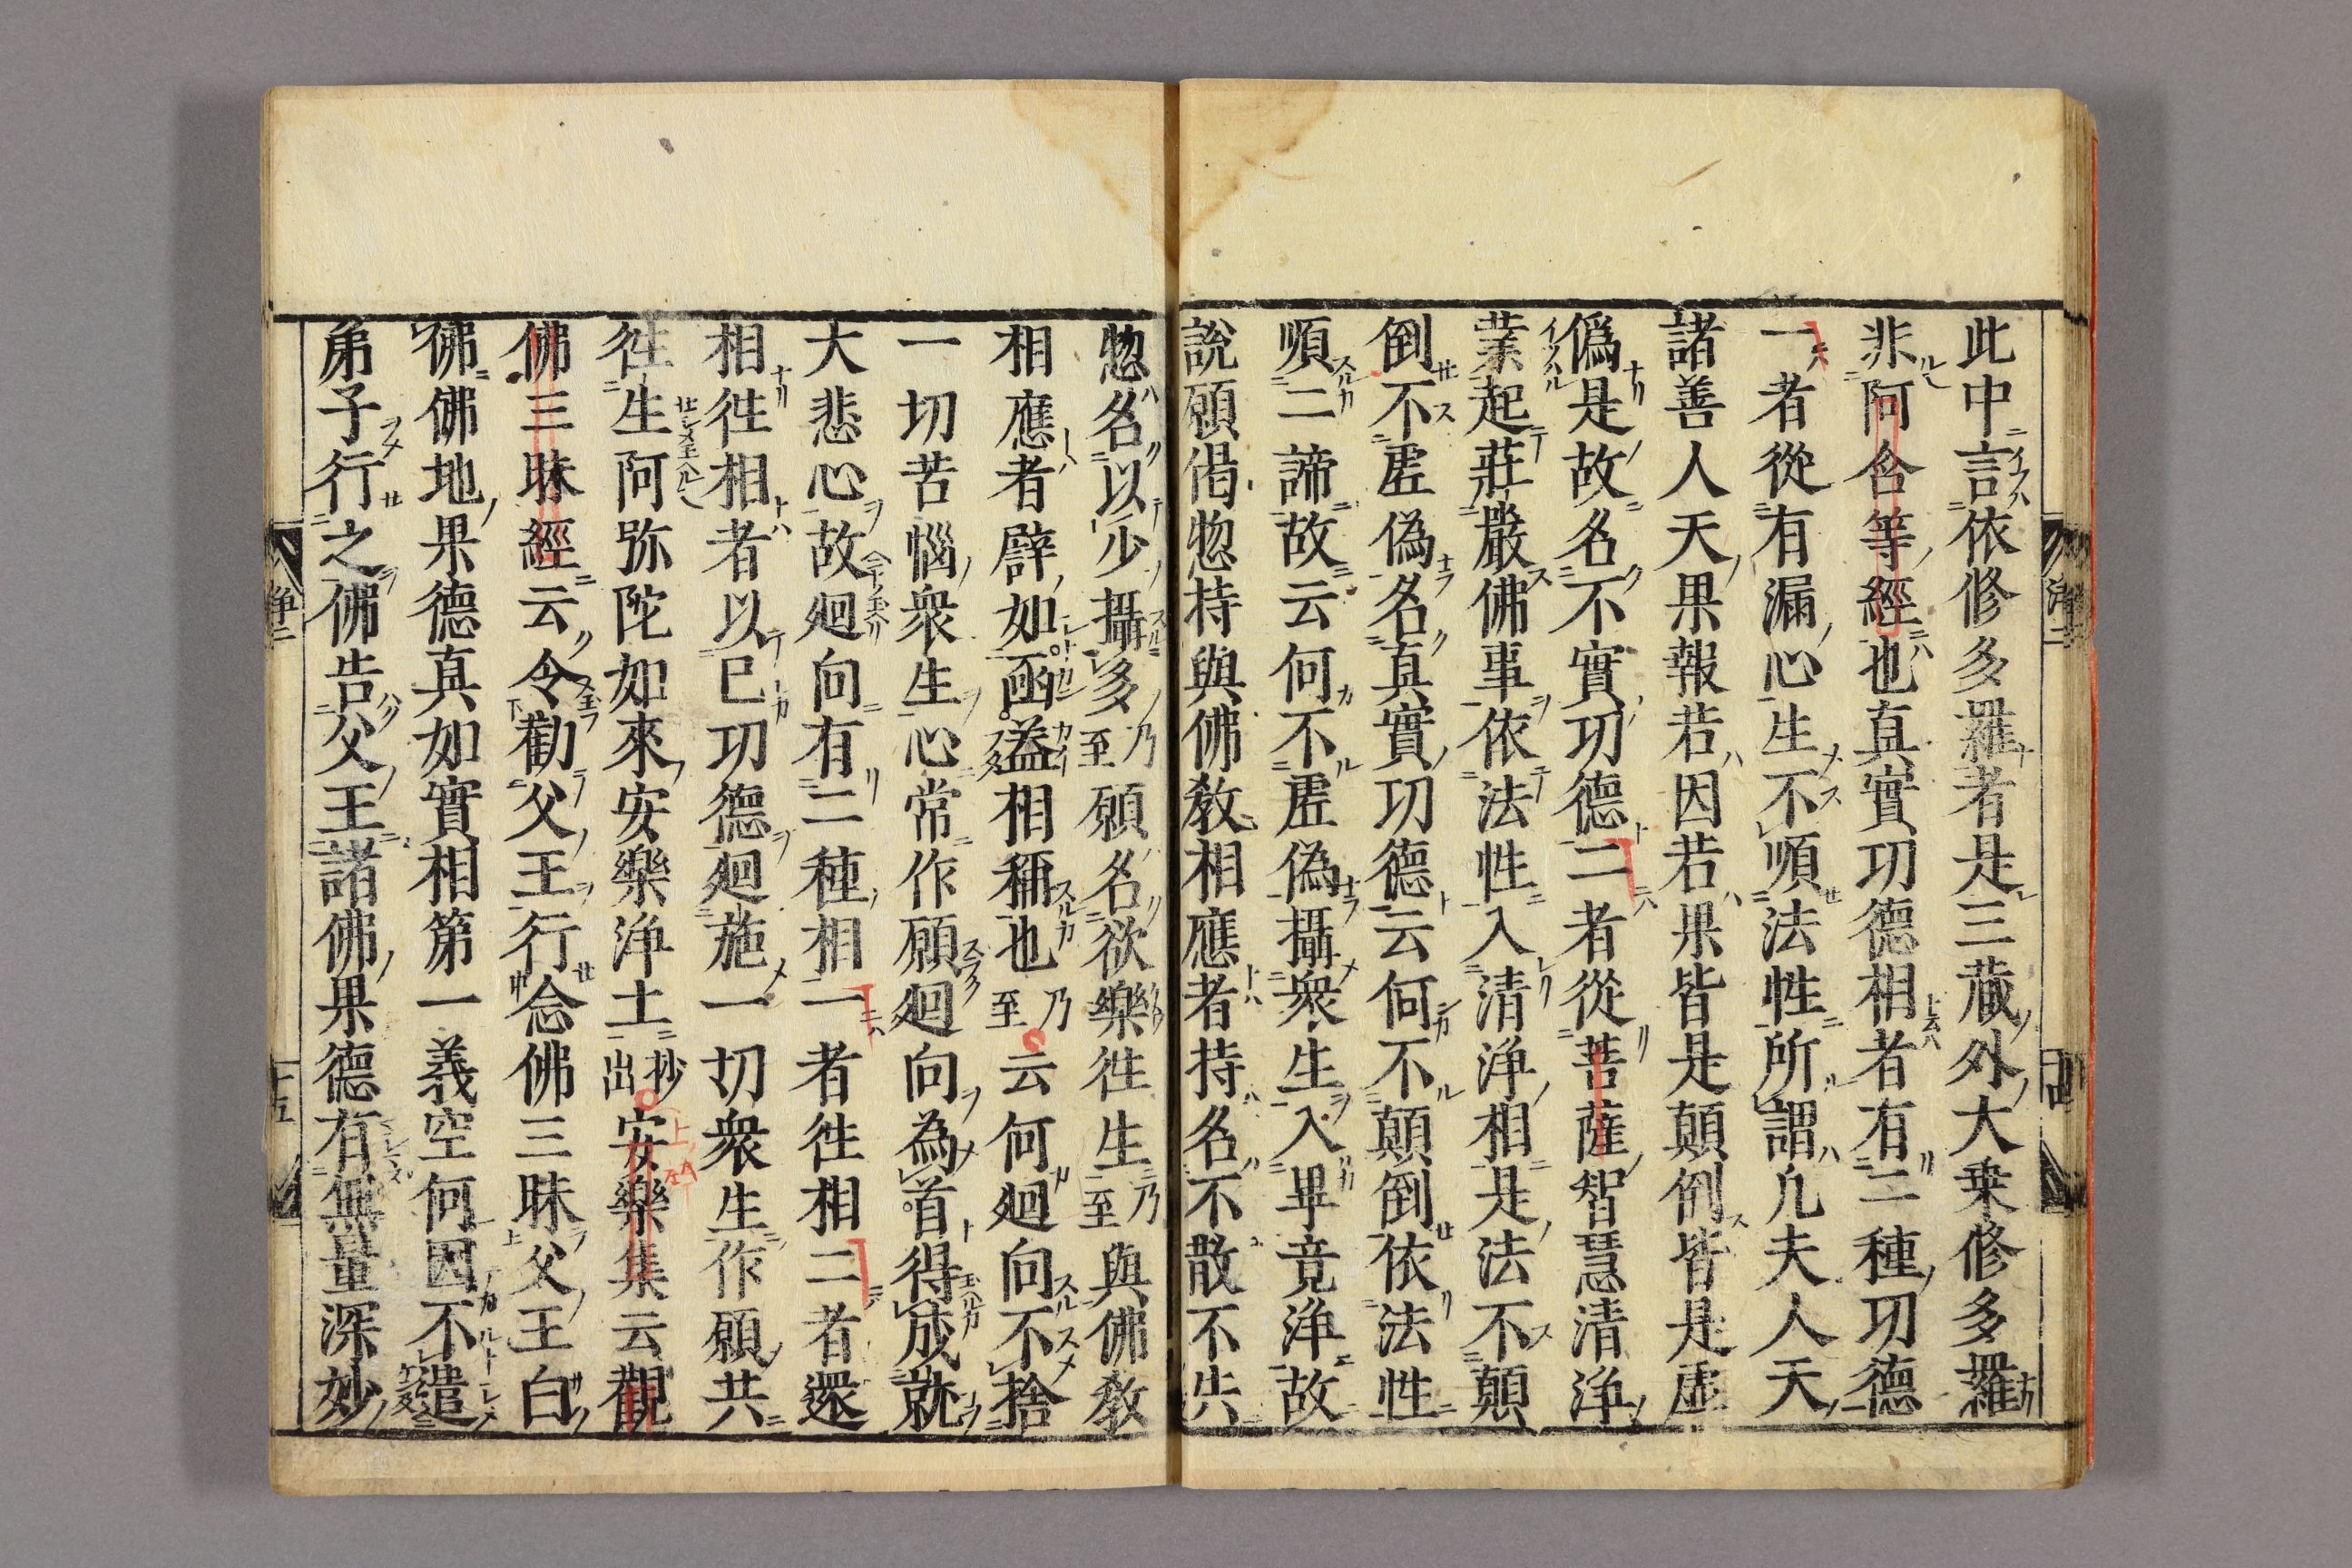 此中言依修多羅者是三藏外大乗修多羅
非阿含等經也真實功德相者有二種功德
一者從有漏心生不順法性所謂凡夫人天
諸善人天果報若因若果皆是顛倒皆是虚
偽是故名不實功德二者從菩薩智慧清浄
業起莊嚴佛事依法性入清浄相是法不顛
倒不虚偽名真實功德云何不顛倒依法性
順二諦故云何不虚偽攝衆生入畢竟浄故
說願偈惣持與佛教相應者持名不散不失
惣名以少攝多乃至願名欲樂徃生乃至與佛教
相應者譬如函盖相稱也乃至云何廻向不捨
一切苦惱衆生心常作願廻向為首得成就
大悲心故廻向有二種相一者徃相二者還
相徃相者以己功德廻施一切衆生作願共
徃生阿弥陀如來安樂浄土抄出安樂集云觀
佛三昧經云令勸父王行念佛三昧父王白
佛佛地果德真如實相第一義空何因不遣
弟子行之佛告父王諸佛果德有無量深妙
浄二
十五